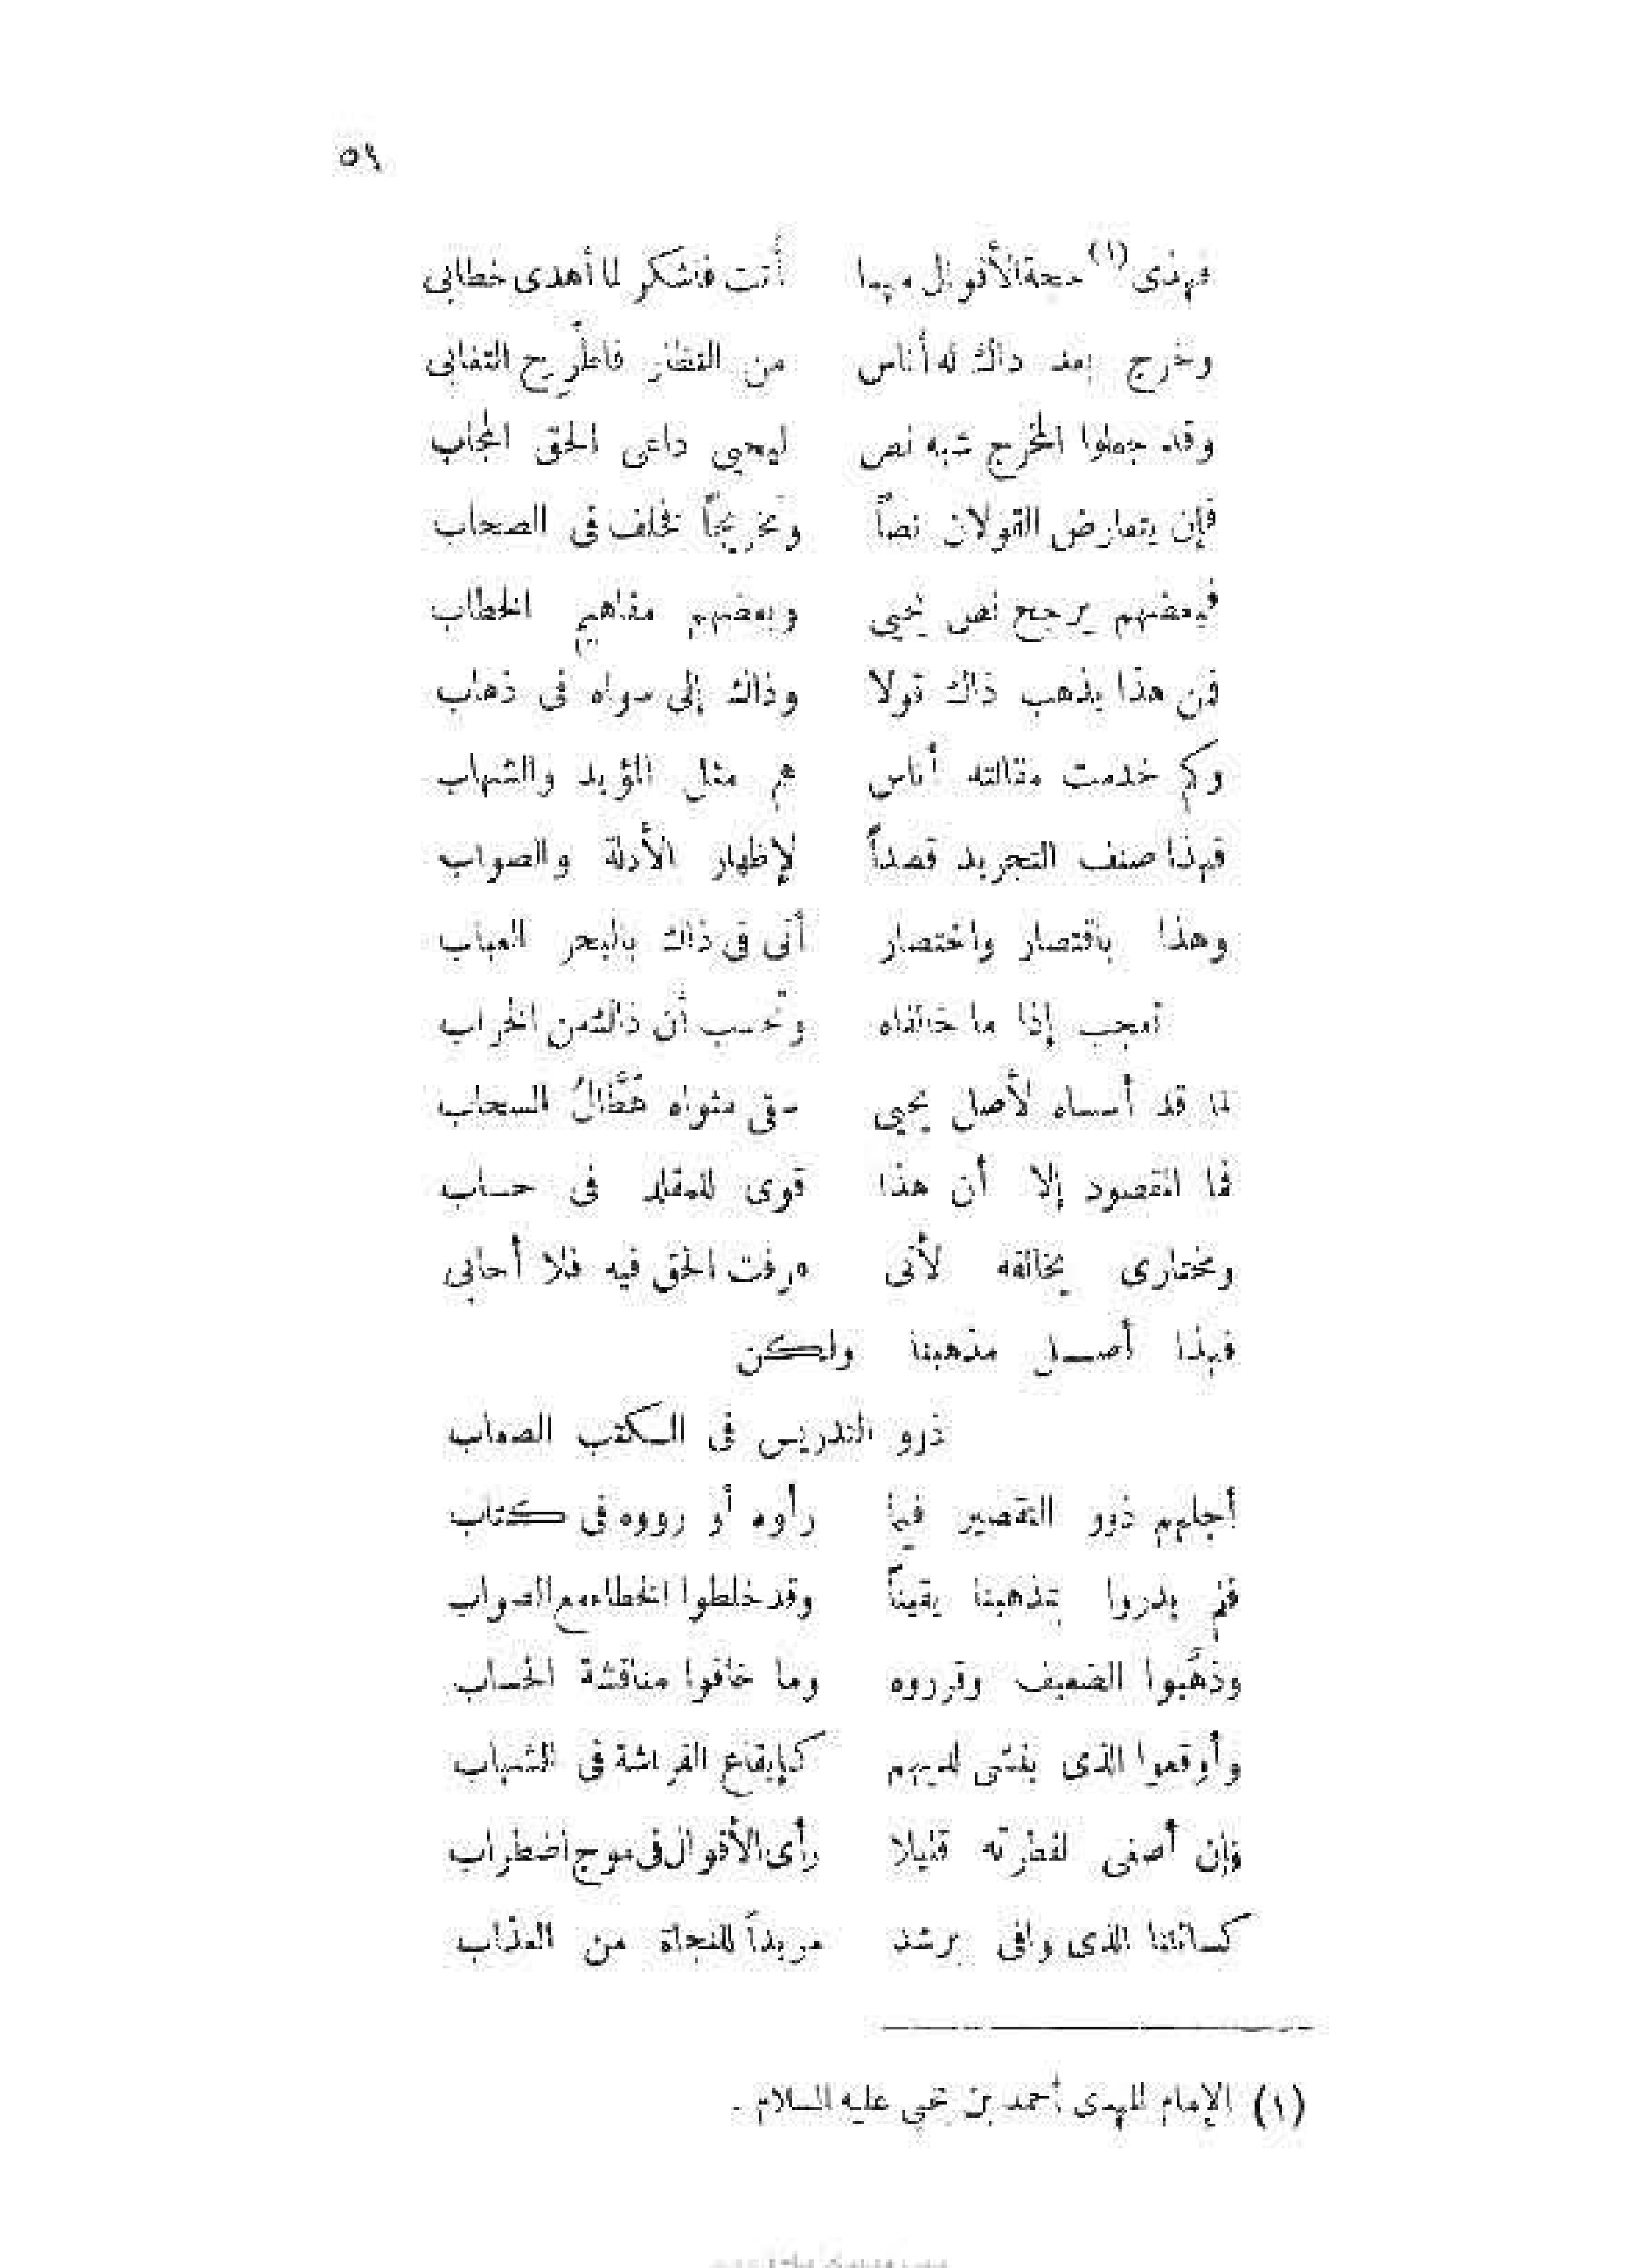 ٥٩
فهذى (١) حجة الأقوال مهما أتت فاشكر لما أهدى خطابى
وخرج بعد ذاك له أناس من النظار فاطّرح التغابى
وقد جعلوا المخرج شبه نص ليحيى داعى الحق المجاب
فإن يتعارض القولان نصاً وتخريجاً فخلف فى الصحاب
فبعضهم يرجح نص يحيى وبعضهم مفاهيم الخطاب
فمن هذا يذهب ذاك قولا وذاك إلى سواه فى ذهاب
وكم خدمت مقالته أناس هم مثل المؤيد والشهاب
فهذا صنف التجريد قصداً لإظهار الأدلة والصواب
وهذا باقتصار واختصار أتى فى ذاك بالبحر العباب
تعجب إذا ما خالفاه وتحسب أن ذاك من الخراب
لما قد أسساه لأصل يحيى سقى مثواه هَطَّالُ السحاب
فما المقصود إلا أن هذا قوى للمقلد فى حساب
ومختارى يخالفه لأنى عرفت الحق فيه فلا أحابى
فهذا أصل مذهبنا ولكن
ذوو التدريس فى الكتب الصعاب
أجلهم ذوو التقصير فيما رأوه أو رووه فى كتاب
فلم يدروا بمذهبنا يقيناً وقد خلطوا الخطاء مع الصواب
وذهَّبوا الضعيف وقرروه وما خافوا مناقشة الحساب
وأوقعوا الذى يفتى لديهم كإيقاع الفراشة فى الشهاب
فإن أصغى لفطرته قليلا رأى الأقوال فى موج اضطراب
كسائلنا الذى وافى برشد مريداً للنجاة من العذاب
(١) الإمام المهدى أحمد بن يحيى عليه السلام .